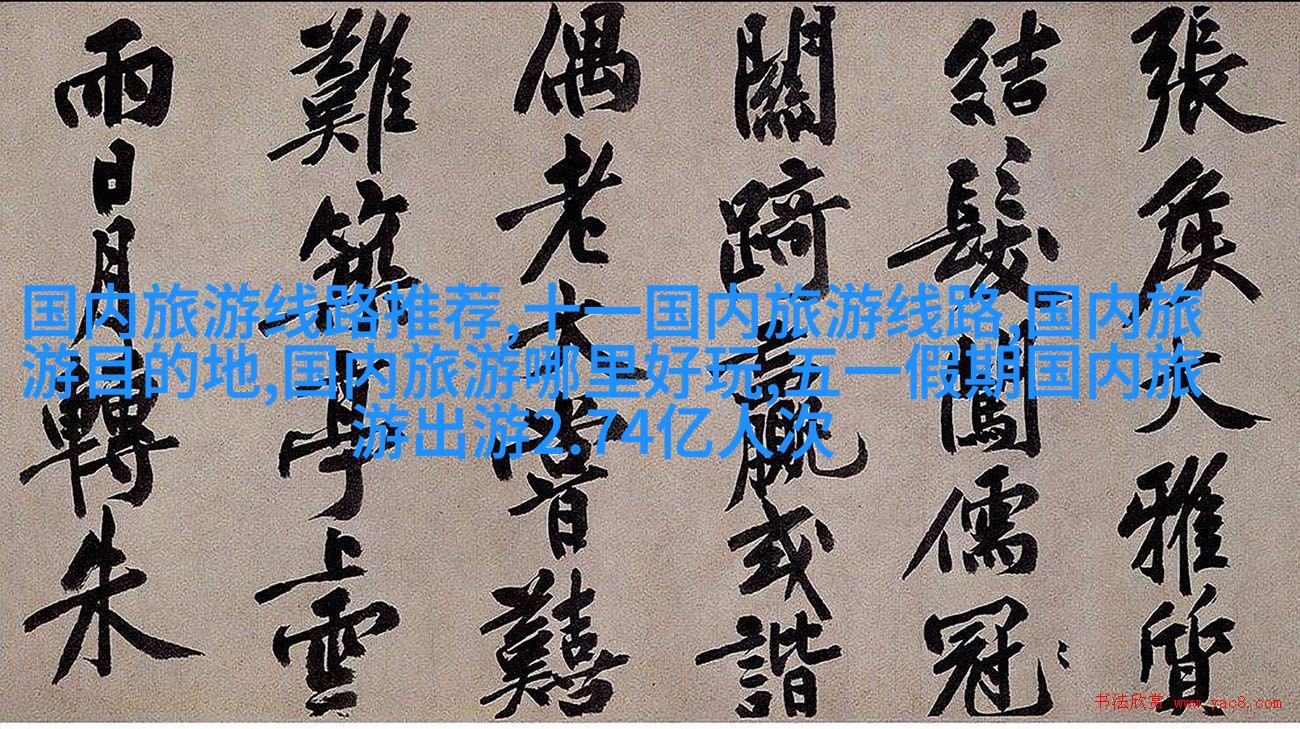 張矦大雅質
結髮闖儒冠
關踦贏或諧
偶老大嘗囏
難築亭上雲
雨日月轉朱
国内旅游线路推荐,十一国内旅游线路,国内旅
游目的地,国内旅游哪里好玩,五一假期国内旅
游出游2.74亿人次
书法欣赏 www.yac8.com